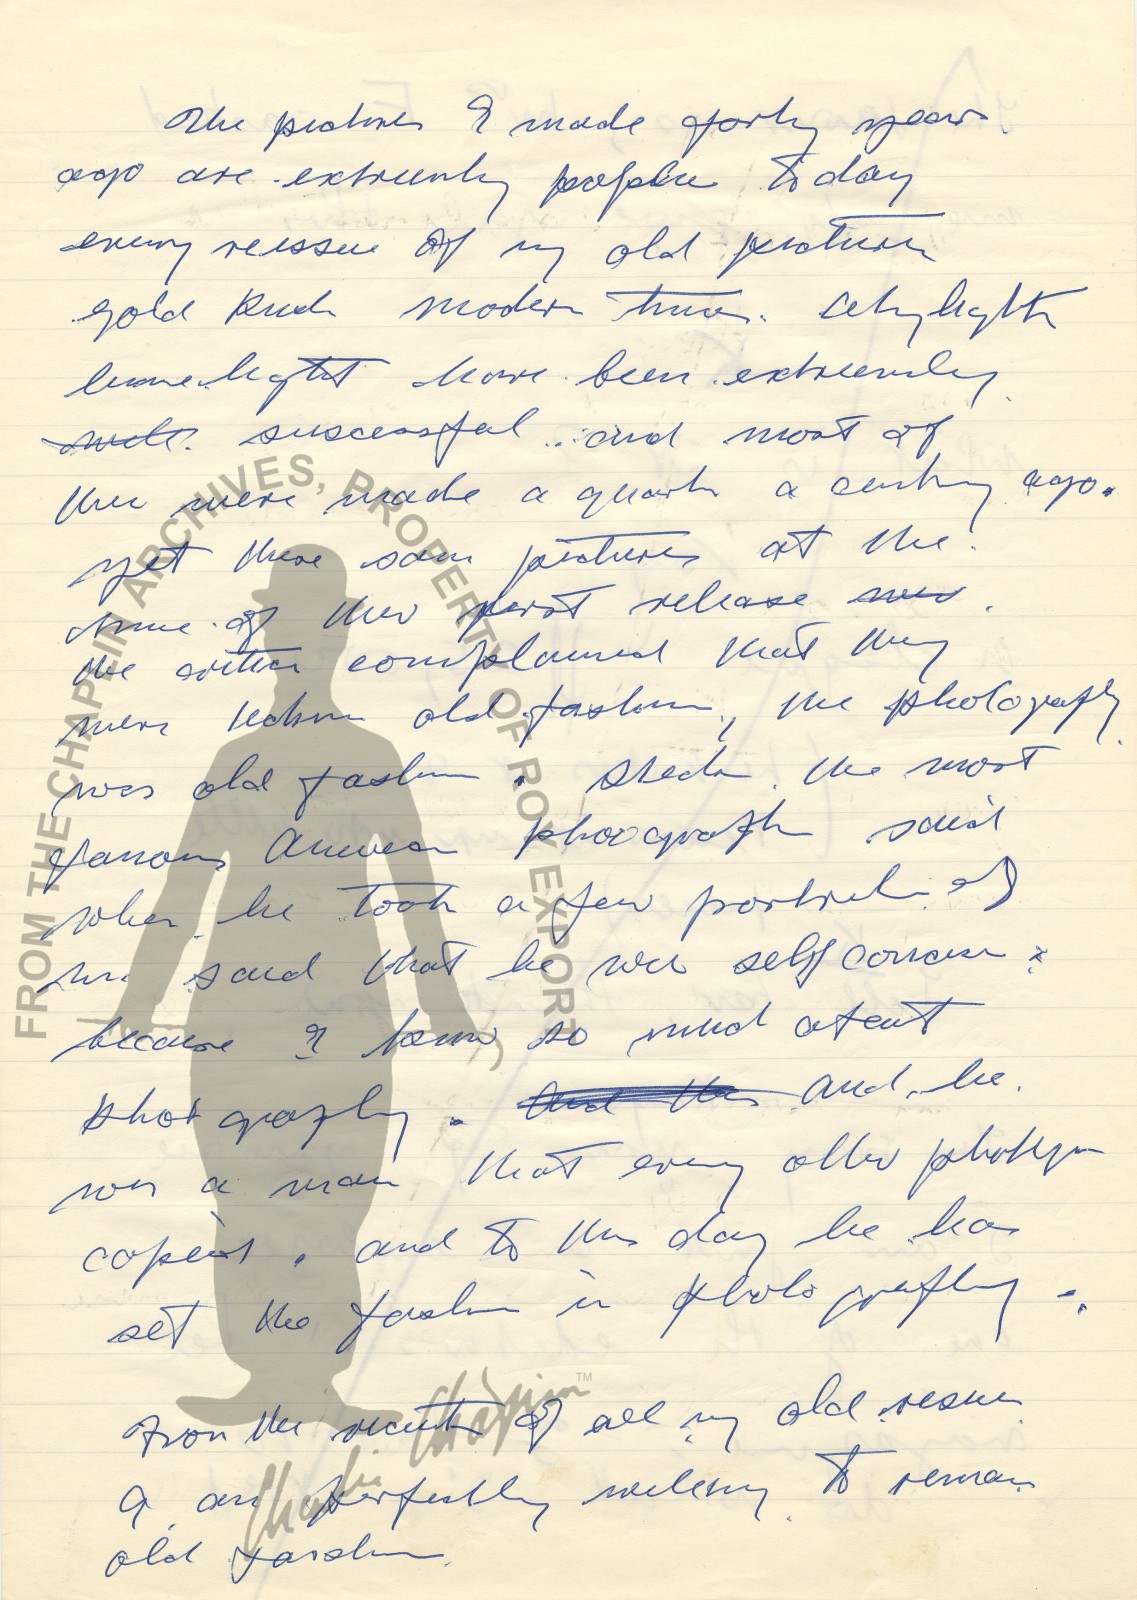 The pictures I made forty years
ago are extremely popular today
every reissue of my old pictures
gold Rush modern times. City lights
limelight have been extremely
successful. and most of
them were made a quarter a century ago.
yet these same pictures at the
time of their first release
the critics complained that they
were old fashion, the photography
was old fashion. the most
famous American photographer said
when he took a few portraits of
me said that he was self conscious
because I knew so much about
photography. and he
was a man that every other photographer
copied. and to this day he has
set the fashion in photography.
From the results of all my old reissues
I am perfectly willing to remain
old fashion.
FROM THE CHAPLIN ARCHIVES, PROPERTY OF ROY EXPORT
Charlie Chaplin™